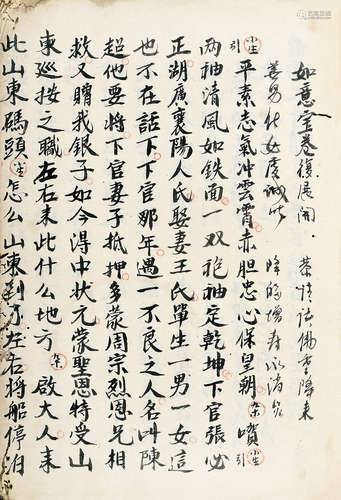 如意宝卷復展開 恭請諸佛重降來
善男仕女虔誠听 降的增寿永消災
生引 平素志氣冲雲霄赤胆忠心保皇朝 杂 生引
两袖清風如鉄面一双袍袖定乾坤下官張必
正湖廣襄陽人氏娶妻王氏单生一男一女這
也不在話下下官那年遇一不良之人名叫陳
超他要將下官妻子抵押多蒙周宗烈恩兄相
救又贈我銀子如今得中状元蒙聖恩特受山
東巡按之職左右耒此什么地方 杂 啟大人耒
此山東碼頭 生 怎么山東到了左右将船停泊